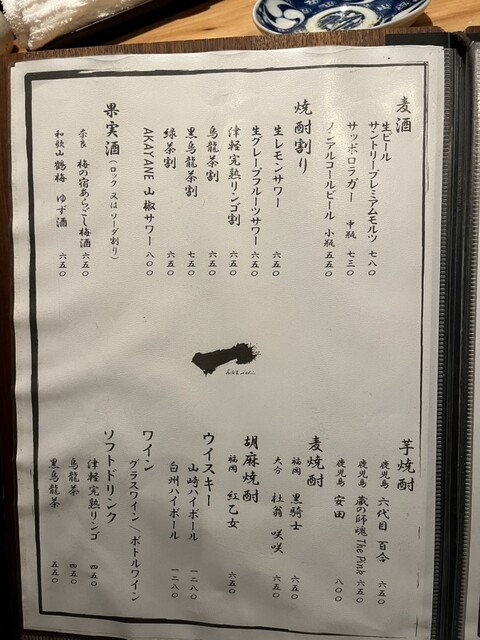 麦酒
生ビール
サントリープレミアムモルツ 七八〇
サッポロラガー 中瓶 七三〇
ノンアルコールビール 小瓶 五五〇
焼酎割り
生レモンサワー 六五〇
生グレープフルーツサワー 六五〇
津軽完熟リンゴ割 六五〇
烏龍茶割 六五〇
黒烏龍茶割 七五〇
緑茶割 六五〇
AKAYANE 山椒サワー 八〇〇
果実酒(ロック 又は ソーダ割り)
奈良 梅の宿あらごし梅酒 六五〇
和歌山 鶴梅 ゆず酒 六五〇
芋焼酎
鹿児島 六代目 百合 六五〇
鹿児島 蔵の師魂 The Pink 六五〇
鹿児島 安田 八〇〇
麦焼酎
福岡 黒騎士 六五〇
大分 杜翁 咲咲 六五〇
胡麻焼酎
福岡 紅乙女 六五〇
ウイスキー
山崎ハイボール 一二八〇
白州ハイボール 一二八〇
ワイン
グラスワイン/ボトルワイン
ソフトドリンク
津軽完熟リンゴ 四五〇
烏龍茶 四五〇
黒烏龍茶 五五〇